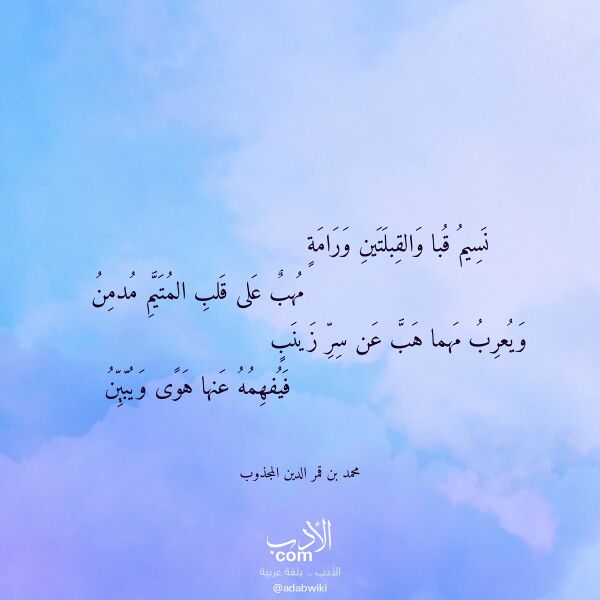 نَسِيمُ قُبا وَالقِبلَتَينِ وَرَامَةٍ
مُهبٌ عَلى قَلبِ المُتَيَّمِ مُدمِنُ
وَيُعرِبُ مَهما هَبَّ عَن سِرِّ زَينَبٍ
فَيُفهِمُهُ عَنها هَوًى وَيُبّيِنُ
محمد بن قمر الدين المجذوب
الأدب
com
الأدب .. بلغة عربية
@adabwiki